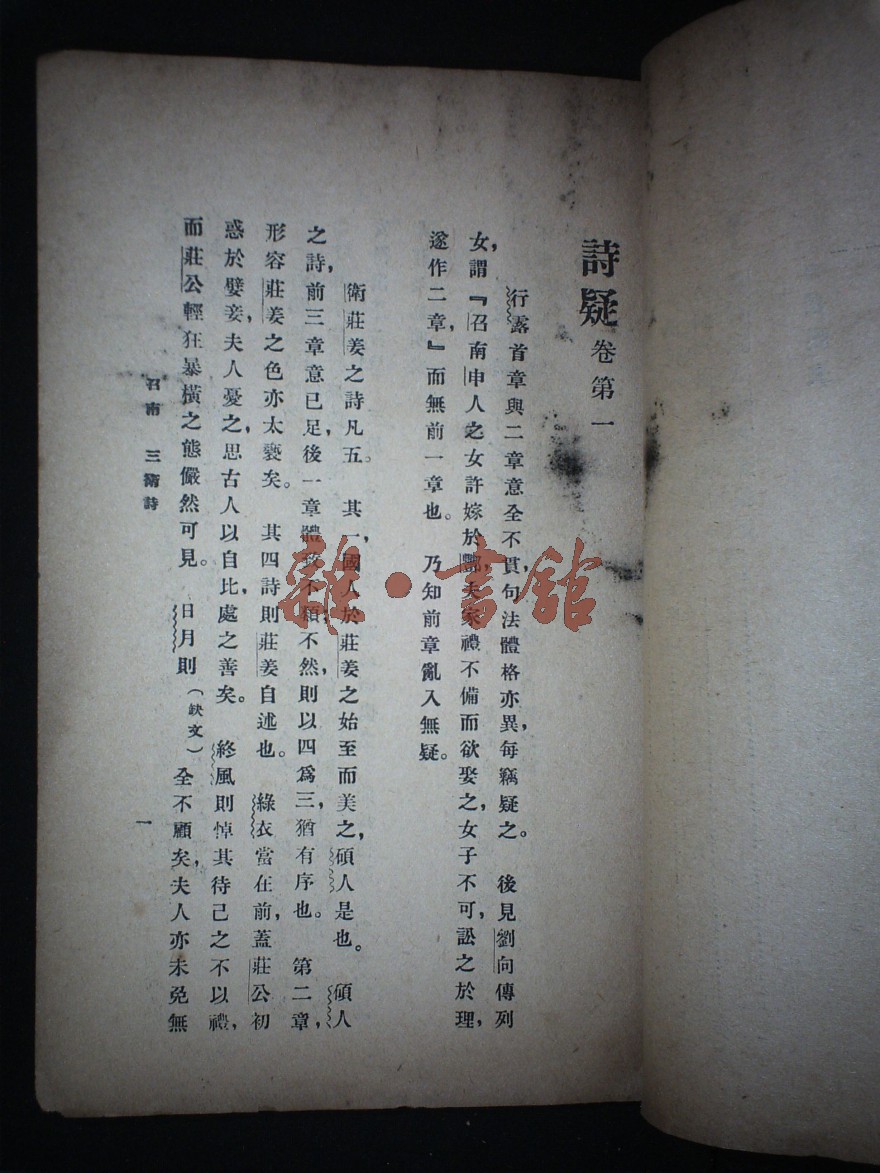 詩疑卷第一
行露首章與二章意全不貫，句法體格亦異，每竊疑之。後見劉向傳列
女，謂『召南申人之女許嫁於酆，夫家禮不備而欲娶之，女子不可，訟之於理，
遂作二章，』而無前一章也。乃知前章亂入無疑。
衛莊姜之詩凡五。其一，國人於莊姜之始至而美之，碩人是也。碩人
之詩，前三章意已足，後一章體致不類不然，則以四爲三，猶有序也。第二章，
形容莊姜之色亦太褻矣。其四詩則莊姜自述也。綠衣當在前，蓋莊公初
惑於嬖妾，夫人憂之，思古人以自比，處之善矣。終風則悼其待己之不以禮，
而莊公輕狂暴橫之態儼然可見。日月則（缺文）全不顧矣，夫人亦未免無
召南 三衛詩
一
雜·書館